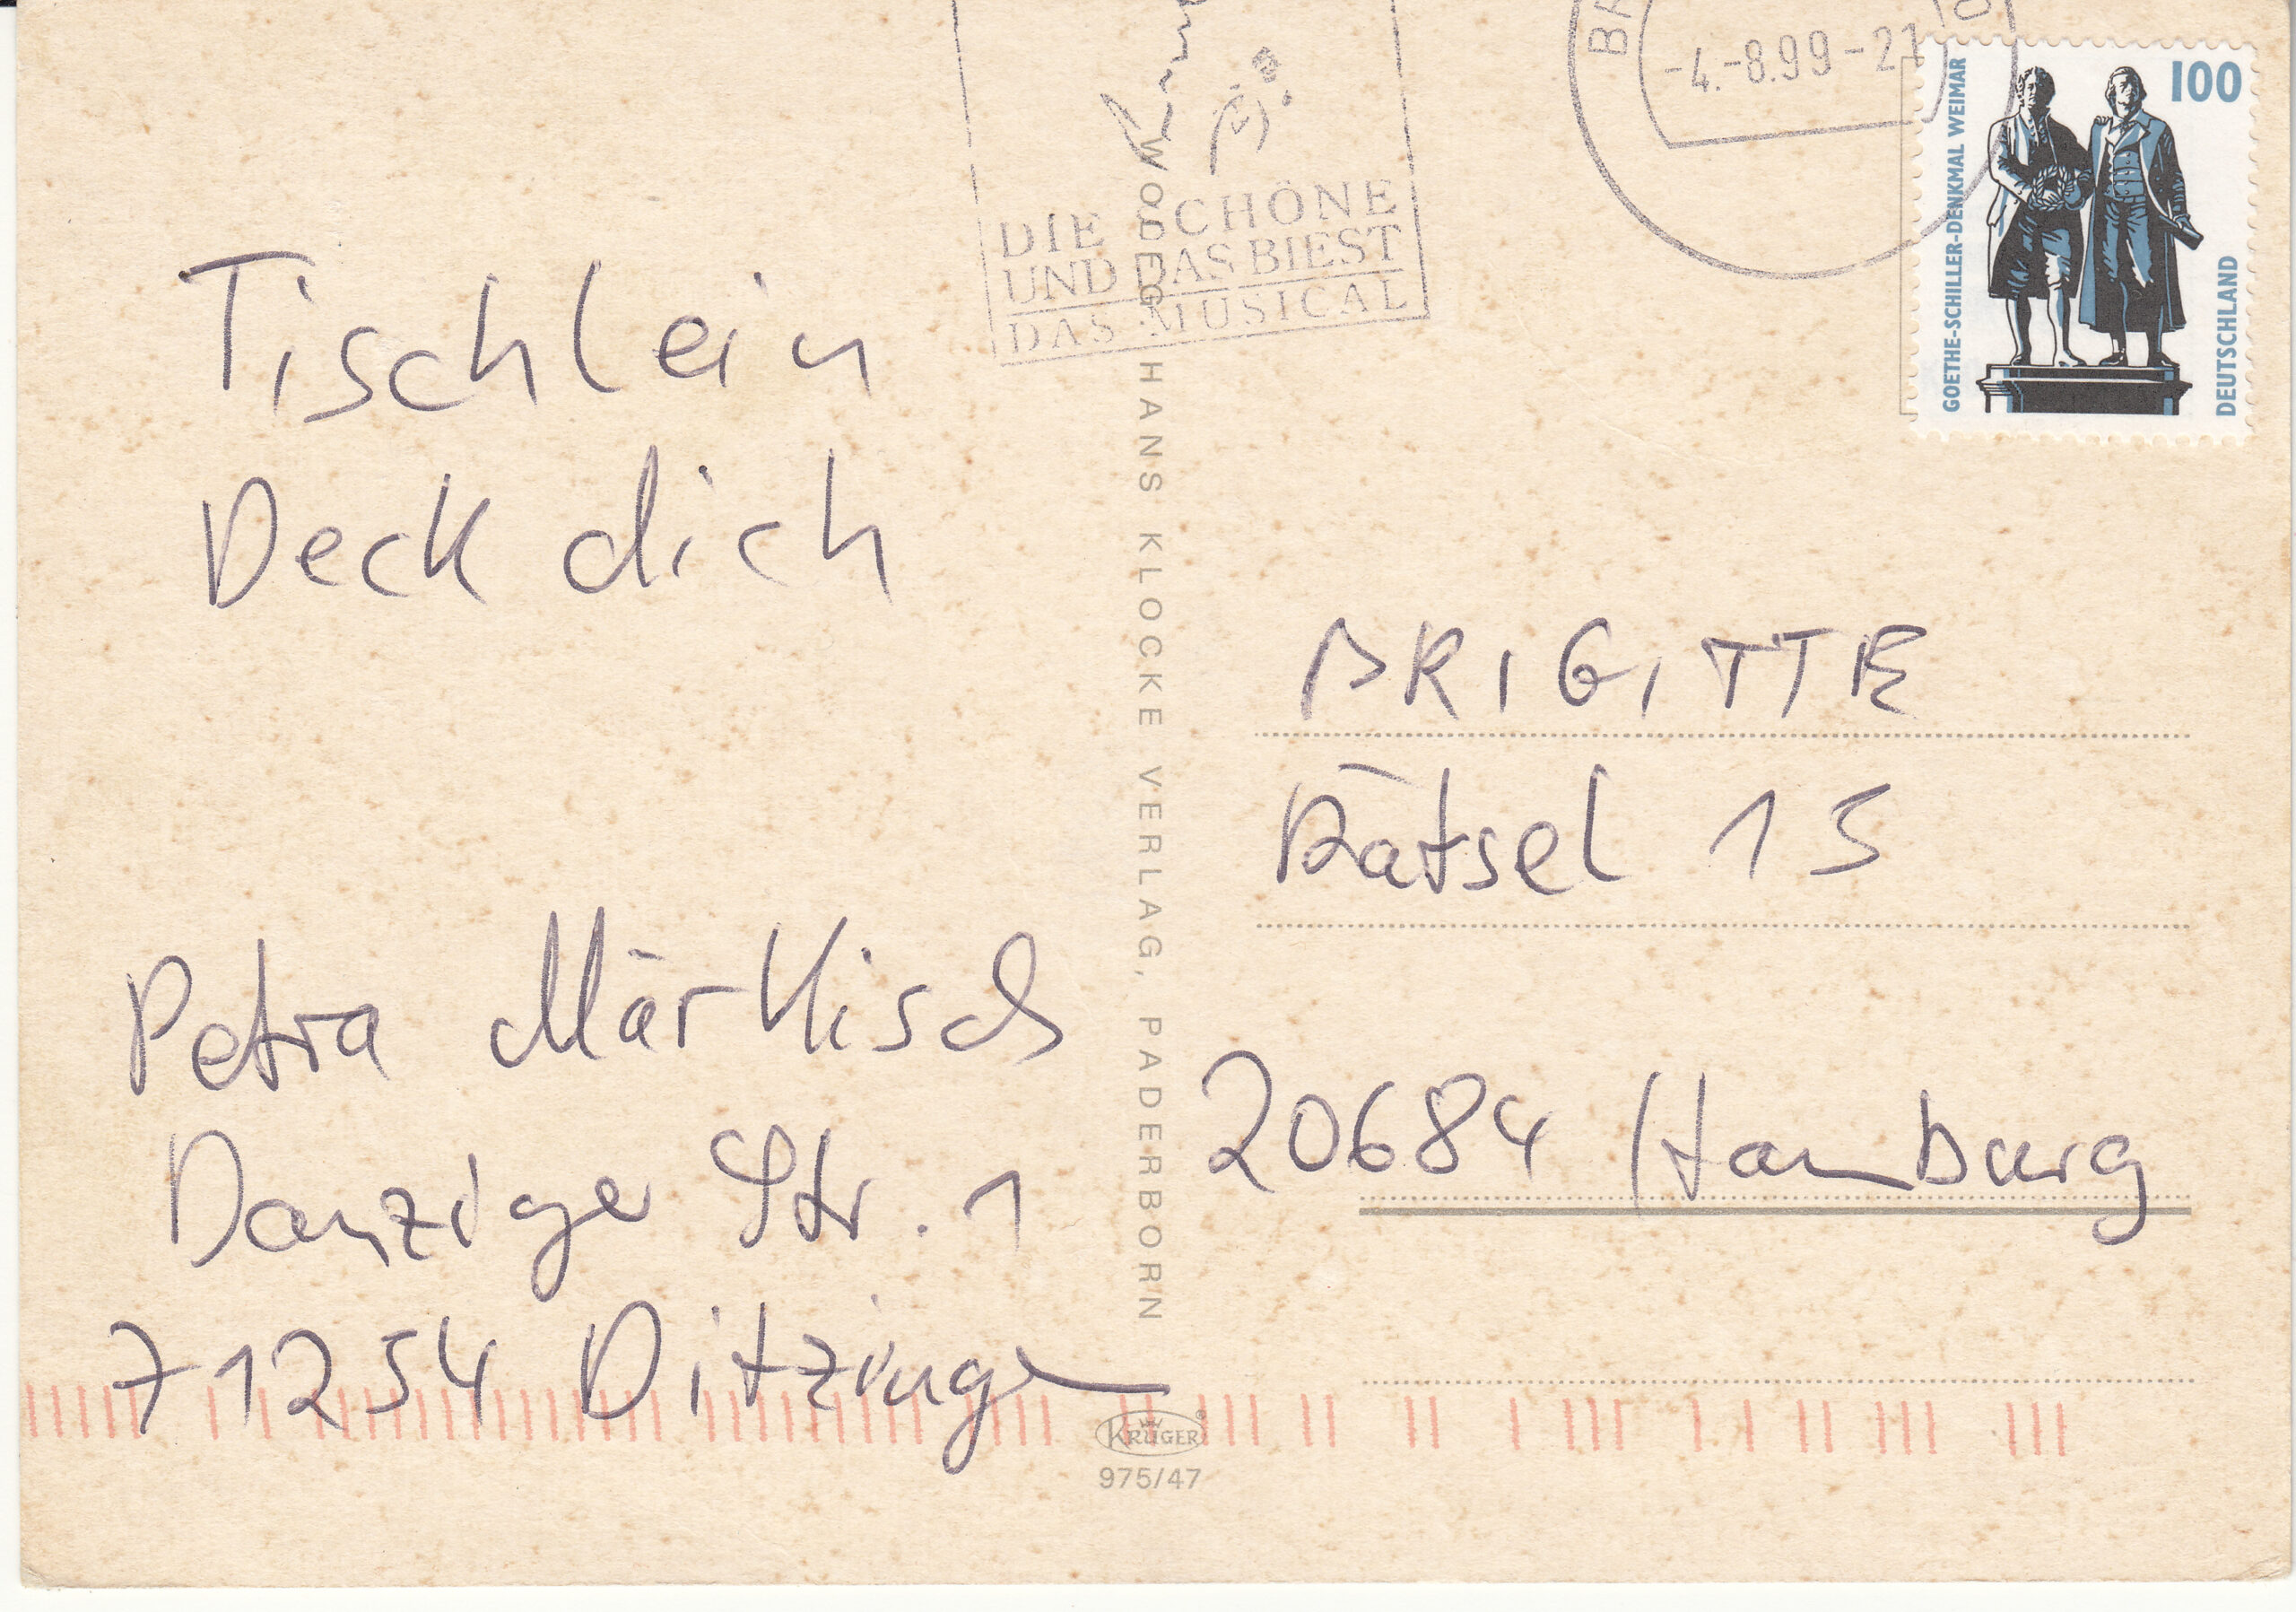 Tischlein
Deck dich
Petra Märkisch
Danziger Str. 1
71254 Ditzingen
DIE SCHÖNE
UND DAS BIEST
DAS MUSICAL
WODEGA: HANS KLOCKE VERLAG, PADERBORN
KRÜGER
975/47
-4.-8.99-21
100
GOETHE-SCHILLER-DENKMAL WEIMAR
DEUTSCHLAND
BRIGITTE
Rätsel 15
20684 Hamburg